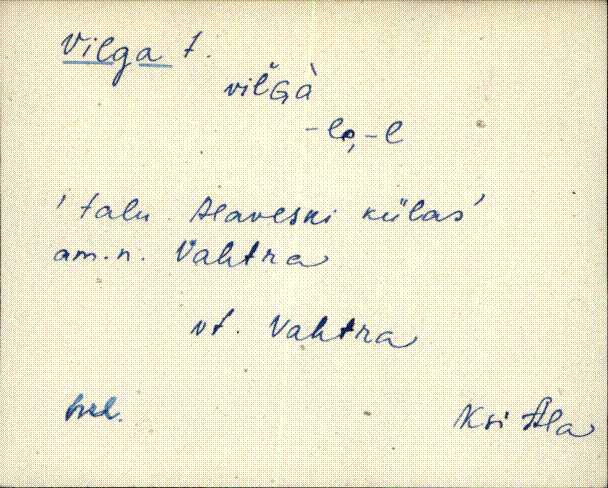 Vilga t.
vil̆Gà
-le, -l
' talu Alaveski külas '
am. n. Vahtra
vt. Vahtra
Ksi Ala